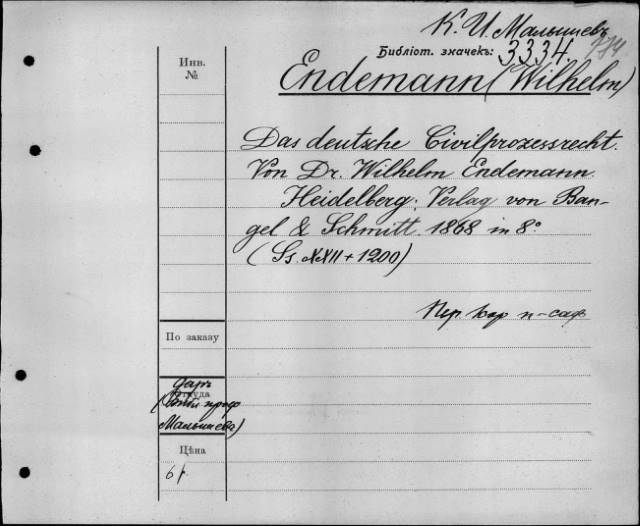 К. И. Малышевъ
Библіот. значекъ: 3334.
774
Инв.
№
Endemann (Wilhelm)
Das deutsche Civilprozessrecht.
Von Dr. Wilhelm Endemann.
Heidelberg. Verlag von Ban-
gel & Schmitt. 1868 in 8°
(Ss. XXII + 1200)
Пер. кор п-саф
По заказу
даръ
Откуда
(Библ проф
Малышева)
Цѣна
6 р.